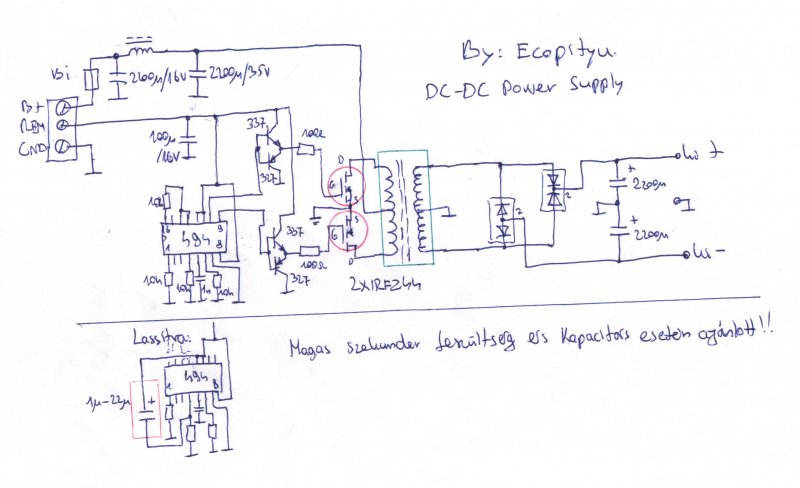 By: Ecopityu.
DC-DC Power Supply
Bi
2200µ/16V
2200µ/35V
B+
REM
GND
100µ
/16V
337
327
100Ω
D
G
S
10k
16
9
494
1
8
337
327
100Ω
S
G
D
10k
10k
1n
10k
2xIRFZ44
2
2
+
2200µ
+
2200µ
Ki +
Ki -
Lassítva:
494
1
8
1µ-22µ
+
Magas szekunder feszültség és Kapacitás esetén ajánlott!!